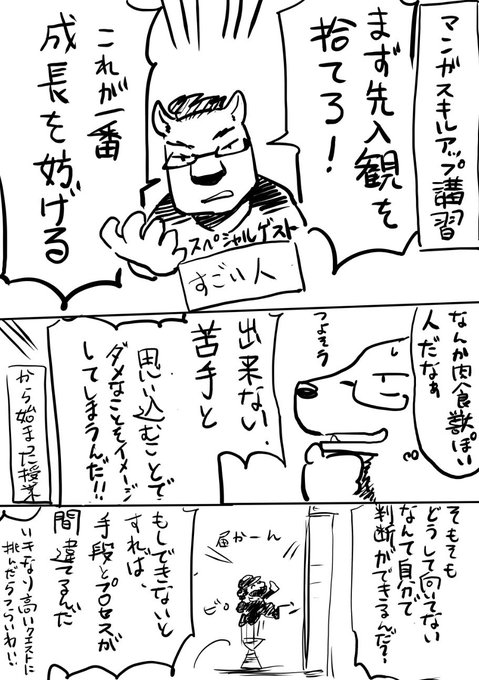 マンガスキルアップ講習
まず先入観を
捨てろ!
これが一番
成長を妨げる
スペシャルゲスト
すごい人
なんか肉食獣ぽい
人だなぁ
つよそう
出来ない・
苦手と
思い込むことで
ダメなことをイメージ
してしまうんだ!!
から始まった授業
そもそも
どうして向いてない
なんて自分で
判断ができるんだ?
届かーん
ピョ
もしできないと
すれば、
手段とプロセスが
間違ってるんだ
いきなり高いクエストに
挑んだらつらいわい!!